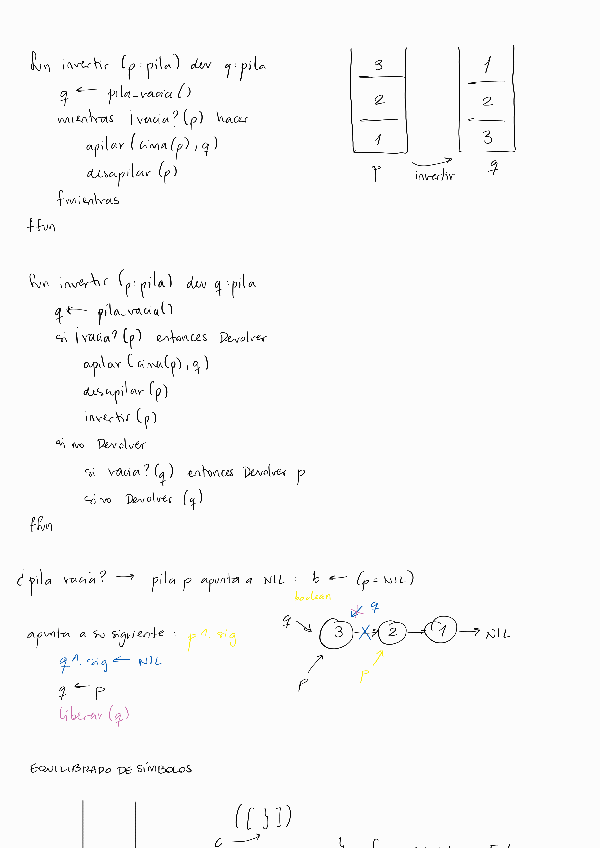 fun invertir (p:pila) dev q:pila
q ← pila_vacia()
mientras ¡vacia?(p) hacer
apilar (cima(p), q)
desapilar (p)
fmientras
ffun
3
2
1
p
invertir
1
2
3
q
fun invertir (p:pila) dev q:pila
q ← pila_vacia()
si ¡vacia?(p) entonces Devolver
apilar (cima(p), q)
desapilar (p)
invertir (p)
si no Devolver
si vacia?(q) entonces Devolver p
sino Devolver (q)
ffun
¿pila vacia? → pila p apunta a NIL : b ← (p = NIL)
apunta a su siguiente : p^.sig
q^.sig ← NIL
q ← p
liberar (q)
q
q
3 → 2 → 1 → NIL
p
p
EQUILIBRADO DE SÍMBOLOS
([}])
c →